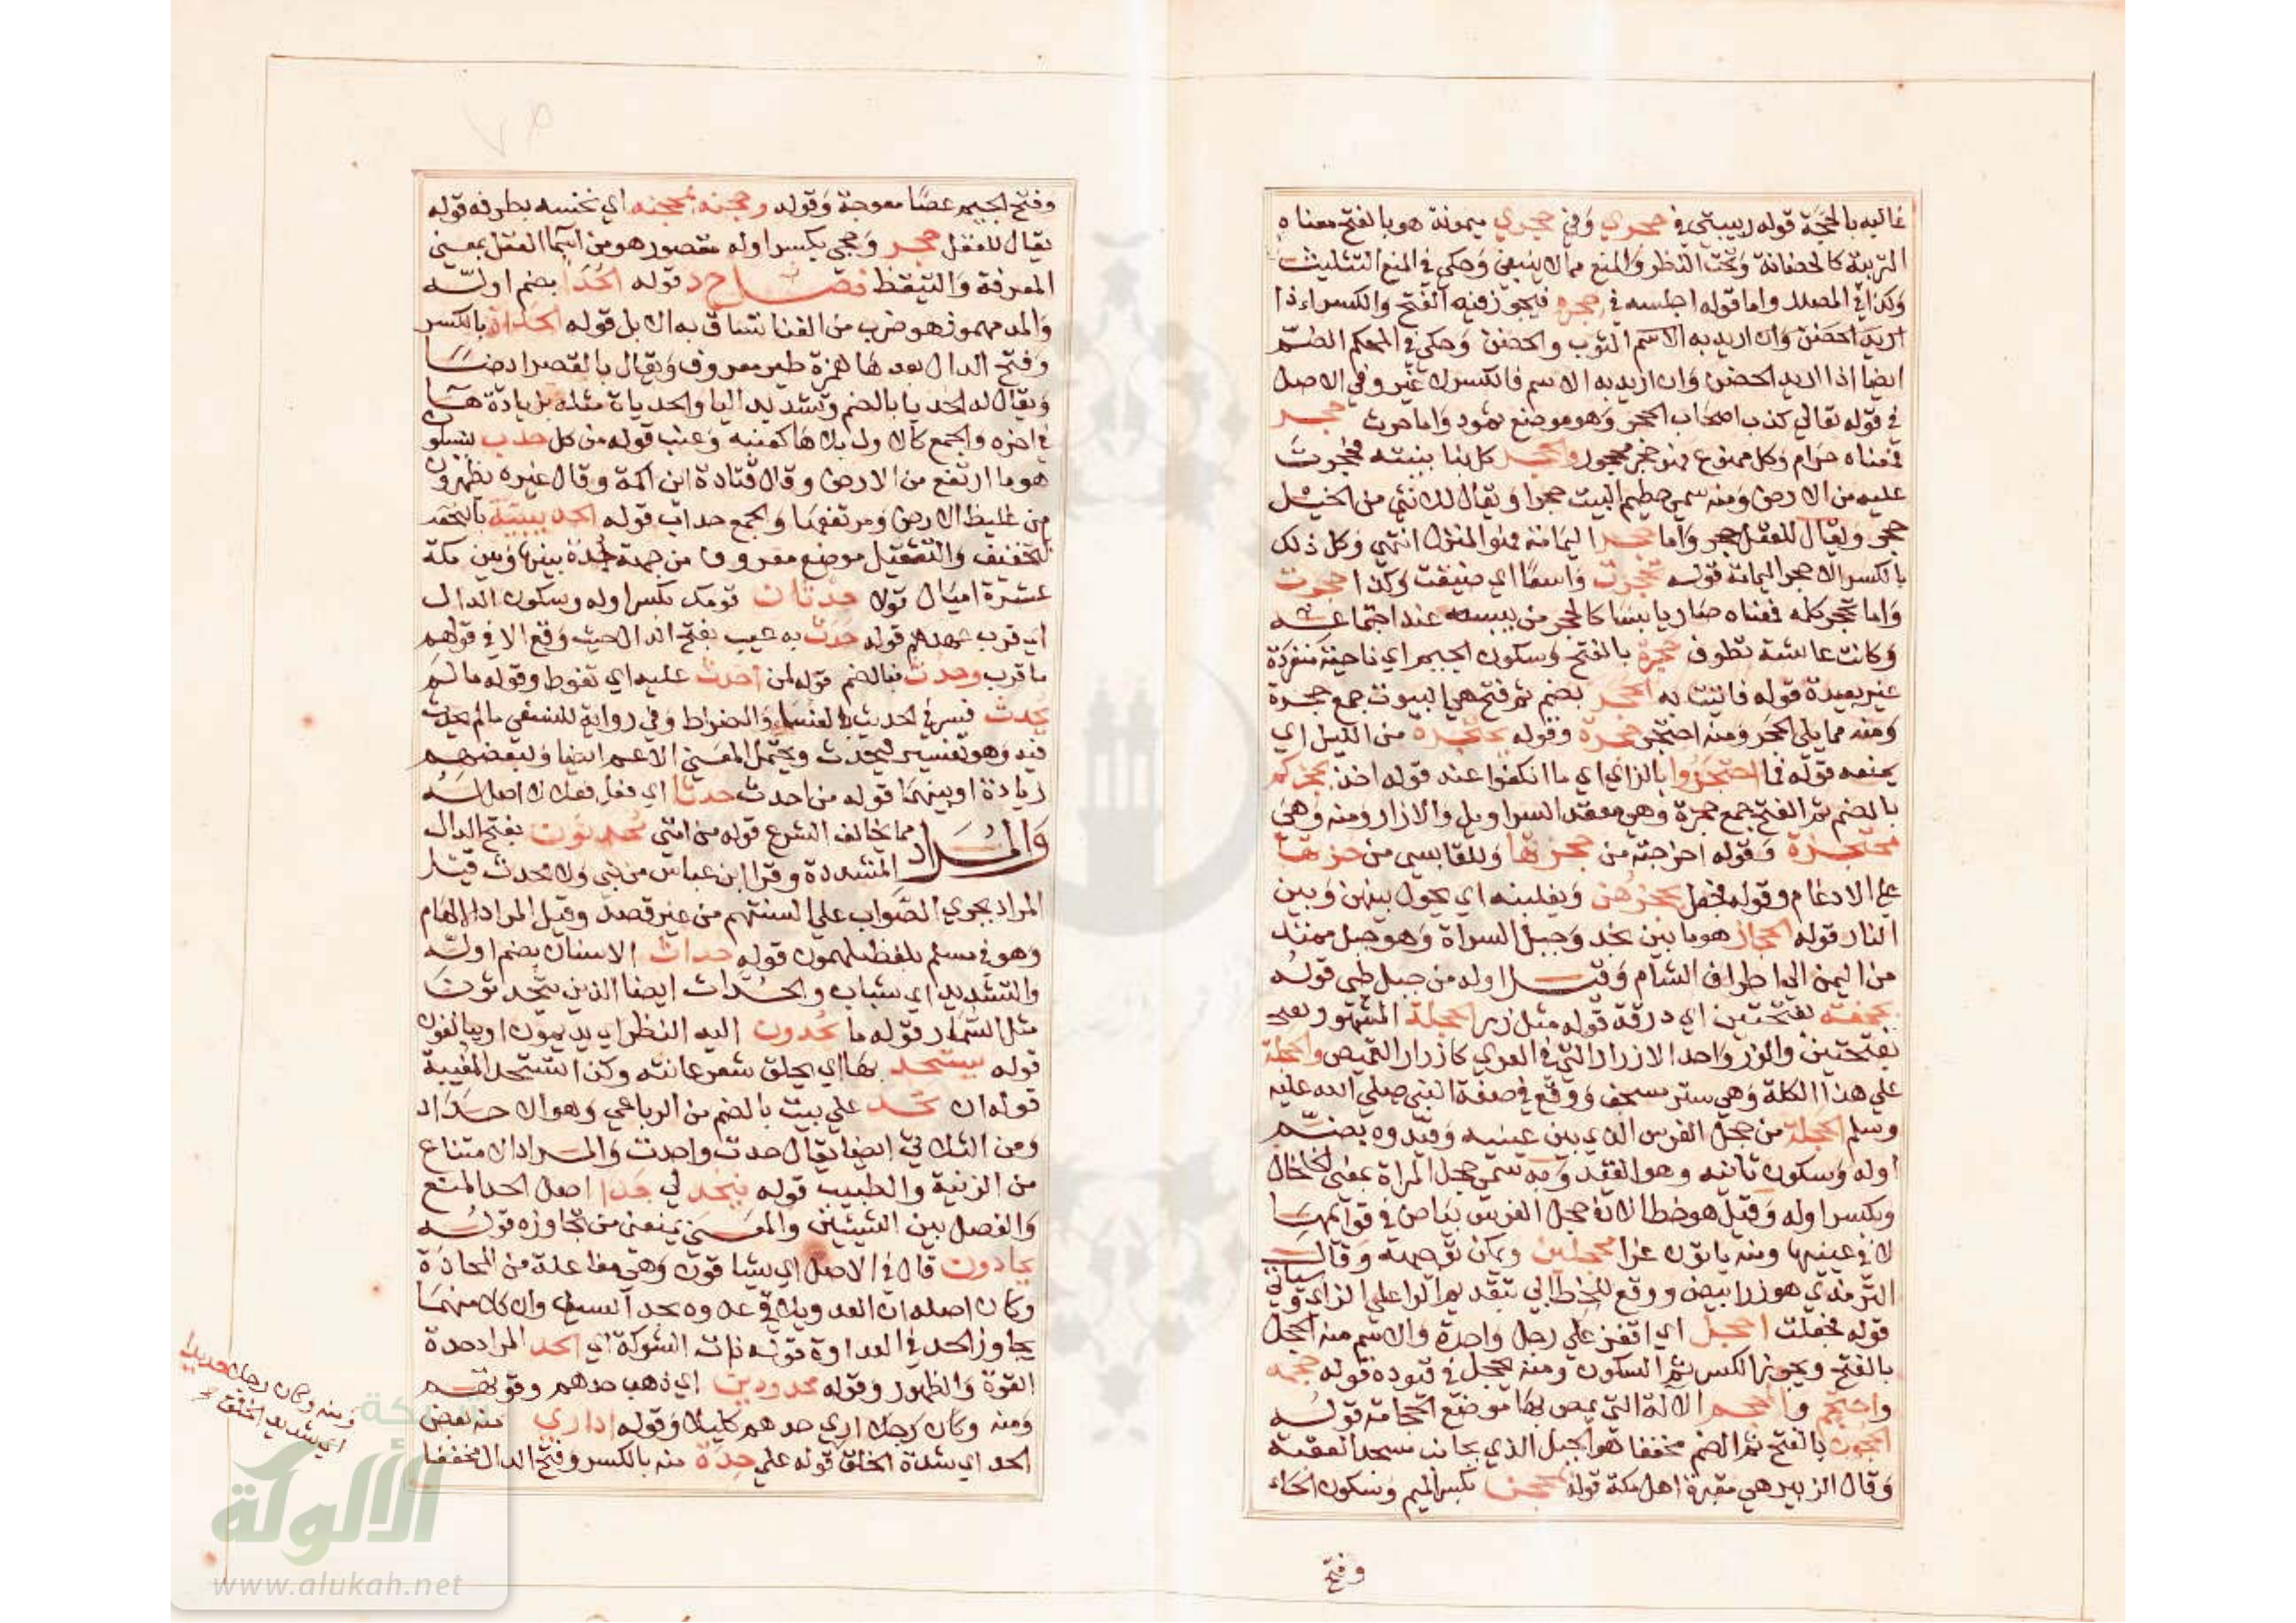 غالبه بالحجة قوله ربيبتي في حجري وفي حجري ميمونة هو بالفتح معناه
التربية كالحضانة وتحت النظر والمنع مما لا ينبغي وحكي في المنع التثليث
وكذا في المصدر واما قوله اجلسه في حجره فيجوز فيه الفتح والكسر اذا
اريد الحضن وان اريد به الاسم الثوب والحضن وحكي في المحكم الضم
ايضا اذا اريد الحضن وان اريد به الاسم فالكسر لا غير وفي الاصل
في قوله تعالى كذب اصحاب الحجر وهو موضع ثمود واما حرث حجر
فمعناه حرام وكل ممنوع فهو حجر محجور والحجر كل بنا بنيته فحجرت
عليه من الارض ومنه سمي حطيم البيت حجرا ويقال للانثى من الخيل
حجر ويقال للعقل حجر واما حجر اليمامة فهو المنزل انتهى وكل ذلك
بالكسر الا حجر اليمامة قوله تحجرت واسعا اي ضيقت وكذا حجرت
واما تحجر كلمه فمعناه صار يابسا كالحجر من يبسه عند اجتماعه
وكانت عائشة تطوف حجرة بالفتح وسكون الجيم اي ناحية منفردة
غير بعيدة قوله فاتيت به الحجر بضم ثم فتح هي البيوت جمع حجرة
ومنه مما يلي الحجر ومنه احتجر حجرة وقوله يحتجره من الليل اي
يمنعه قوله فما احتجزوا بالزاي اي ما انكفوا عنه قوله اخذ بحجزكم
بالضم ثم الفتح جمع حجزة وهي معقد السراويل والازار ومنه وهي
محتجزة وقوله اخرجته من حجزتها وللقابسي من حزتها
على الادغام وقوله فجعل يحجزهن ويغلبنه اي يحول بينهن وبين
النار قوله الحجاز هو ما بين نجد وجبل السراة وهو جبل ممتد
من اليمن الى اطراف الشام وقيل اوله من جبل طي قوله
بحجفة بفتحتين اي درقة قوله مثل زر الحجلة المشهور
بفتحتين والزر واحد الازرار التي في العري كازرار القميص والحجلة
على هذا الكلة وهي ستر بسجف ووقع في صفة النبي صلى الله عليه
وسلم الحجلة من حجل الفرس الذي بين عينيه وقيدوه بضم
اوله وسكون ثانيه وهو القيد وبه سمي حجل المراة بمعنى الخلخال
وبكسر اوله وقيل هو خطا لان حجل الفرس بياض في قوائمها
لا في عينيها ومنه ياتون غرا محجلين ويمكن توجيهه وقال
الترمذي هو زر ابيض ووقع للخطابي بتقديم الرا على الزاي وسياتي
قوله فجعلت احجل اي اقفز على رجل واحدة والاسم منه الحجل
بالفتح ويجوز الكسر ثم السكون ومنه يحجل في قيوده قوله حجمه
واحتجم والمحجم الالة التي يمص بها موضع الحجامة قوله
الحجون بالفتح ثم الضم مخففا هو الجبل الذي بجانب مسجد العقبة
وقال الزبير هي مقبرة اهل مكة قوله محجن بكسر الميم وسكون الحاء
وفتح
وفتح الجيم عصا معوجة وقوله وحجنه بمحجنه اي نخسه بطرفه قوله
يقال للعقل حجر وحجى بكسر اوله مقصور هو من اسما العقل بمعنى
المعرفة والتيقظ فصل ح د قوله الحدا بضم اوله
والمد مهموز هو ضرب من الغنا تساق به الابل قوله الحداة بالكسر
وفتح الدال بعدها همزة طير معروف ويقال بالقصر ايضا
ويقال له الحديا بالضم وتشديد اليا والحدياة مثله بزيادة ها
في اخره والجمع كالاول بلا ها كعنبة وعنب قوله من كل حدب ينسلون
هو ما ارتفع من الارض وقال قتادة اي اكمة وقال غيره يظهرون
من غليظ الارض ومرتفعها والجمع حداب قوله الحديبية
بالتخفيف والتثقيل موضع معروف من جهة جدة بينها وبين مكة
عشرة اميال قوله حدثان قومك بكسر اوله وسكون الدال
اي قرب عهدهم قوله حدث به عيب بفتح الدال حيث وقع الا في قولهم
ما قرب وحدث فبالضم قوله لمن احدث عليه اي تغوط وقوله ما لم
يحدث فسر في الحديث بالفساء والضراط وفي رواية للنسفي ما لم يحدث
فيه وهو تفسير ليحدث ويحتمل المعنى الاعم ايضا ولبعضهم
زيادة او بينهما قوله من احدث حدثا اي فعل فعلا لا اصل له
والمراد مما يخالف الشرع قوله من امتي محدثون بفتح الدال
المشددة وقرا ابن عباس من نبي ولا محدث قيل
المراد يجري الصواب على السنتهم من غير قصد وقيل المراد الالهام
وهو في مسلم بلفظ ملهمون قوله حداث الاسنان بضم اوله
والتشديد اي شباب والحداث ايضا الذين يتحدثون
مثل السمار قوله ما يحدون اليه النظر اي يديمون او يبالغون
قوله يستحد بها اي يحلق شعر عانته وكذا تستحد المغيبة
قوله ان تحد على ميت بالضم من الرباعي وهو الاحداد
ومن الثلاثي ايضا يقال حدت واحدت والمراد الامتناع
من الزينة والطيب قوله فيحد لي حدا اصل الحد المنع
والفصل بين الشيئين والمعنى يمنعني من تجاوزه قوله
يحادون قال في الاصل اي يشاقون وهي مفاعلة من المحادة
وكان اصله ان العدو يلاقي عدوه بحد السيف وان كلا منهما
يجاوز الحد في العداوة قوله ذات الشوكة اي الحد المراد حدة
القوة والظهور وقوله محدودين اي ذهب حدهم وقوتهم
ومنه وكان رجلا ارى حدهم كليلا وقوله اداري منه بعض
الحد اي شدة الخلق قوله على حدة منه بالكسر وفتح الدال مخففا
ومنه وكان رجلا حديدا
اي شديد الخلق
شبكة
الألوكة
www.alukah.net